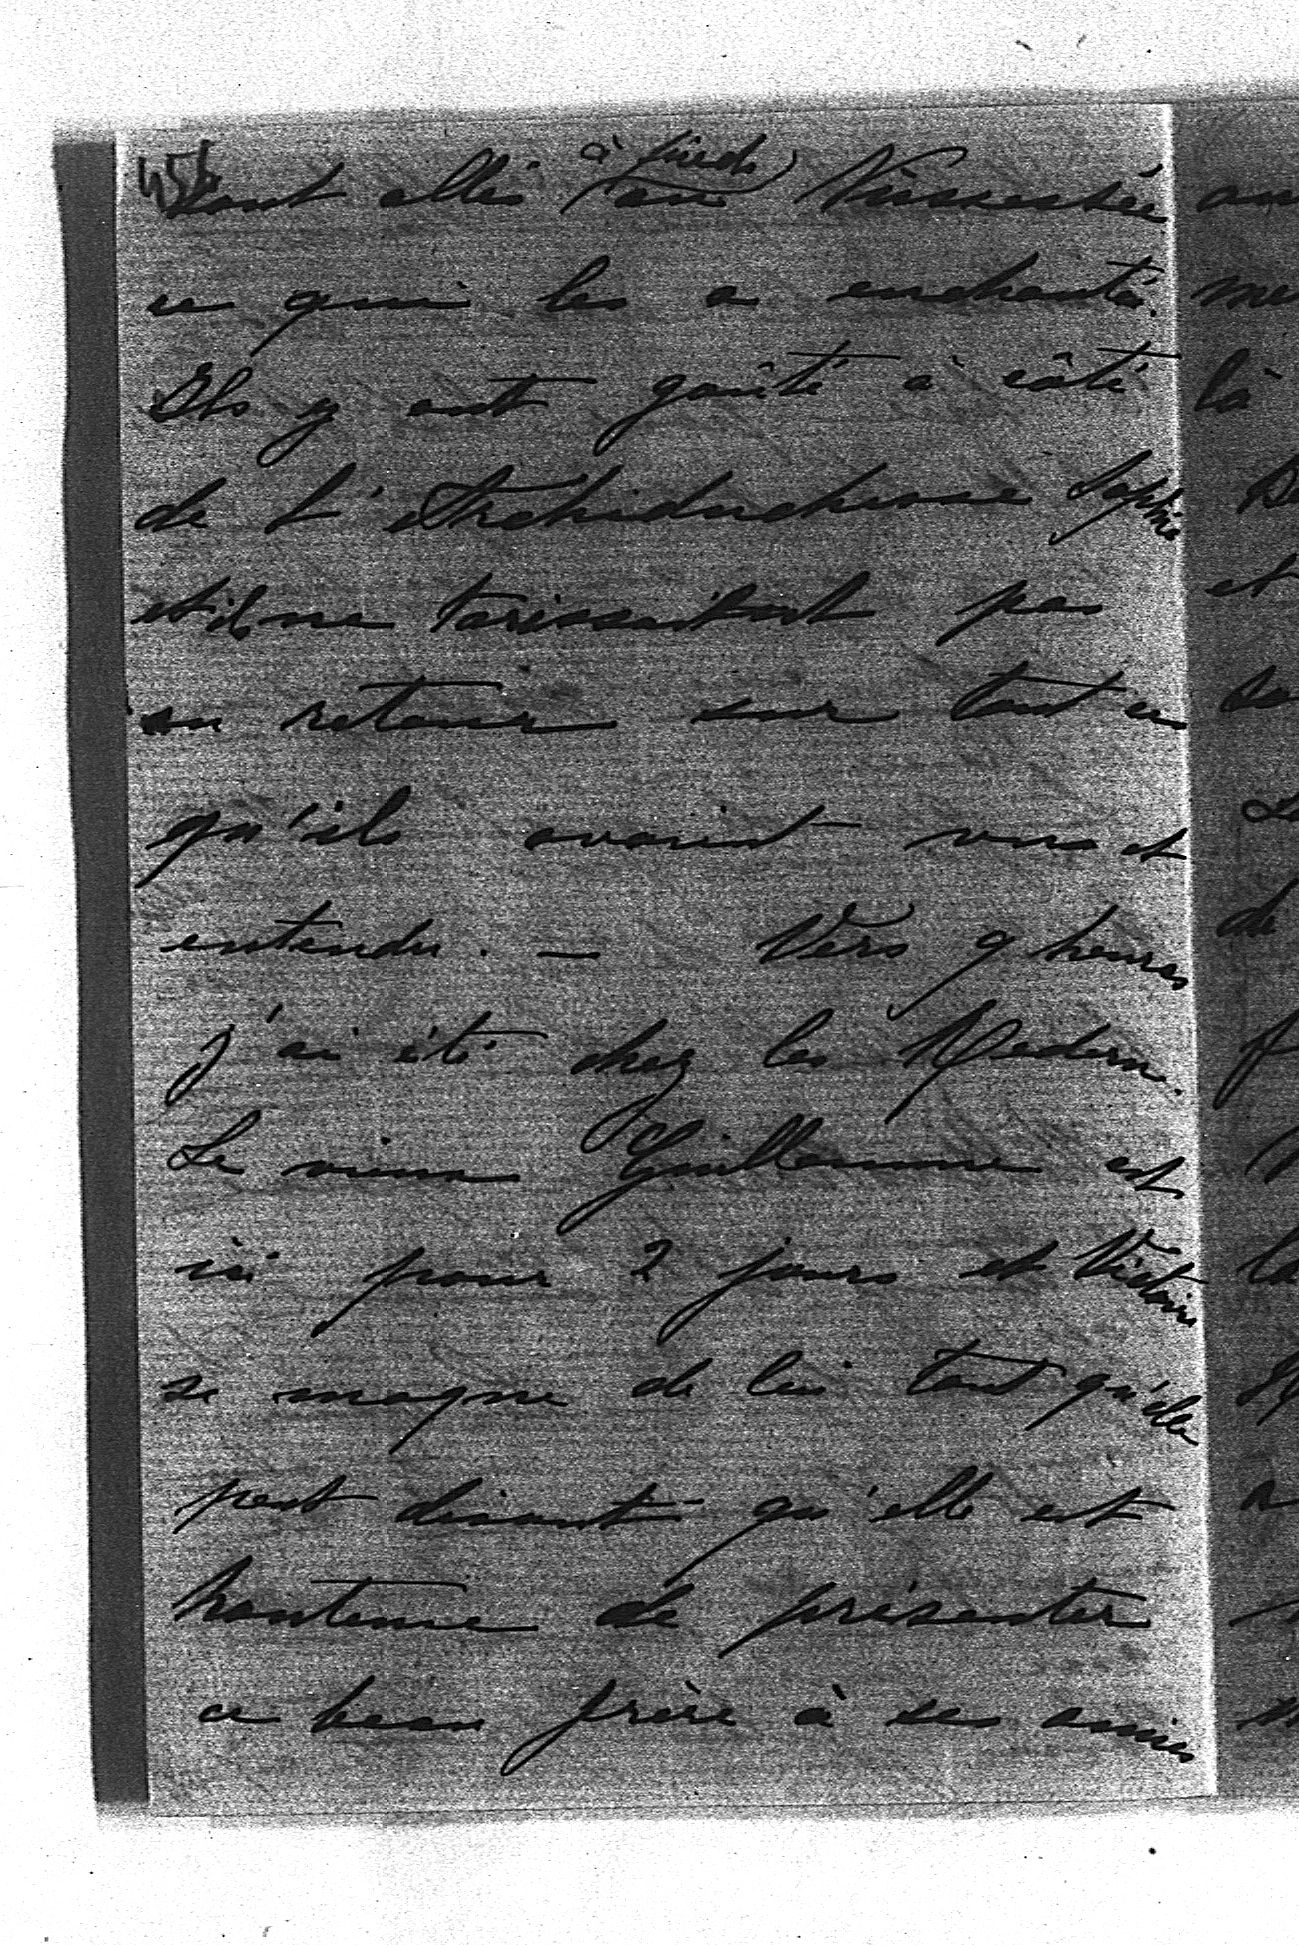 sont allés à pieds au
ce qui les a enchantés.
Ils y ont goûté à côté
de l'Archiduchesse Sophie
et ils ne tarissaient pas
au retour sur tout ce
qu'ils avaient vus et
entendu. — Vers 9 heures
j'ai été chez les Medem.
Le vieux Guillaume est
ici pour 2 jours et Victoire
se moque de lui tant qu'elle
peut disant qu'elle est
honteuse de présenter
ce beau frère à ses amies